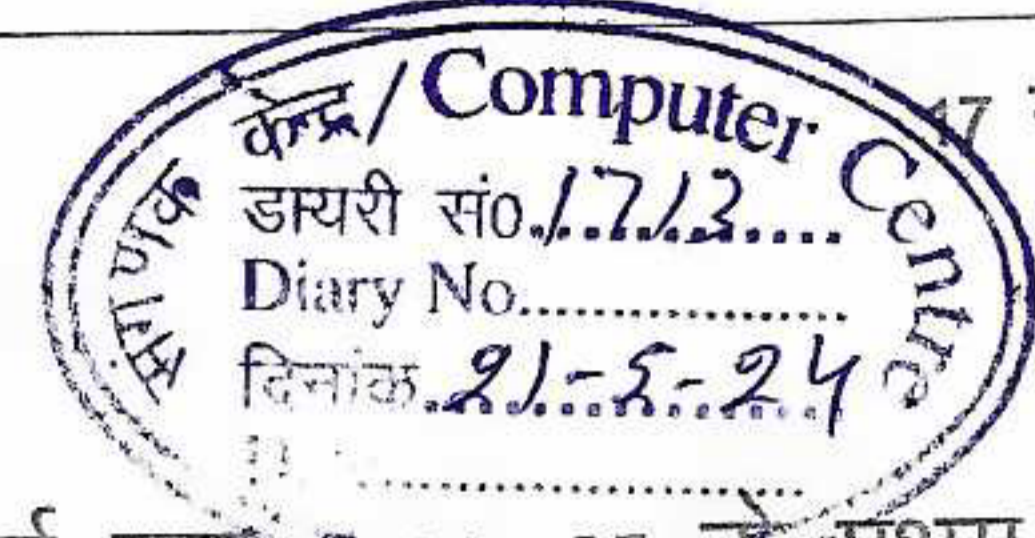 संगणक केन्द्र / Computer Centre
47
डायरी सं०. 1713
Diary No.
दिनांक. 21-5-24